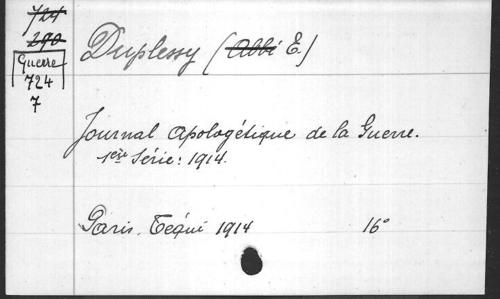 724
290
Guerre
724
7
Duplessy (Abbé E.)
Journal Apologétique de la Guerre.
1ère Série: 1914.
Paris. Téqui 1914 16°